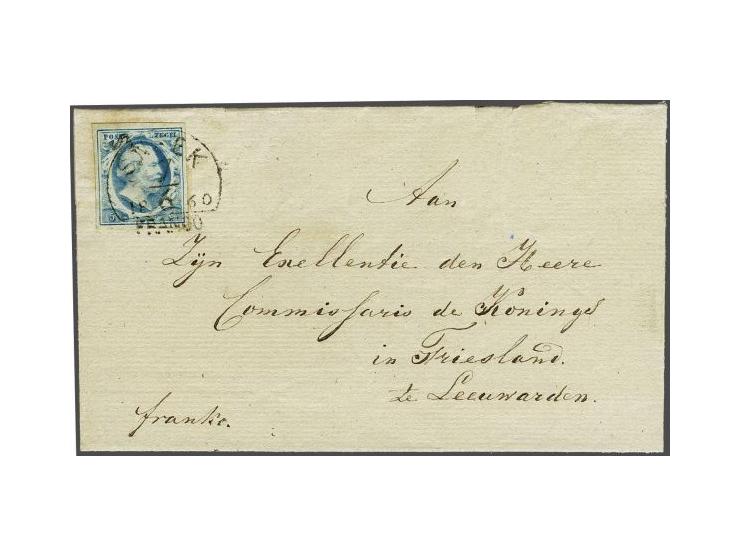 POST ZEGEL
SNEEK
60
FRANCO
Aan
Zijn Exellentie den Heere
Commissaris de Konings
in Friesland.
te Leeuwarden.
franko.